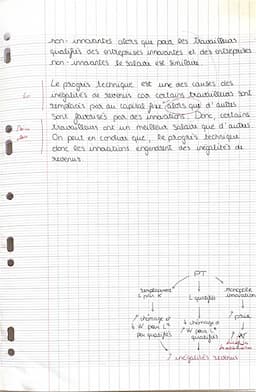 non-innovantes alors que pour les travailleurs
qualifiés des entreprises innovantes et des entreprises
non-innovantes le salaire est similaire.
Le progrès technique est une des causes des
inégalités de revenus car certains travailleurs sont
remplacés par du capital fixe alors que d'autres
sont favorisés par des innovations. Donc, certains
travailleurs ont un meilleur salaire que d'autres.
On peut en conclure que, le progrès technique
donc les innovations engendrent des inégalités de
revenus.
PT
remplacement
L par K
L qualifiés
monopole
innovation
↑ chômage et
↓ W pour L
peu qualifiés
↓ chômage et
↑ W pour L
qualifiés
↑ prix
↑ W
↑ inégalités revenus